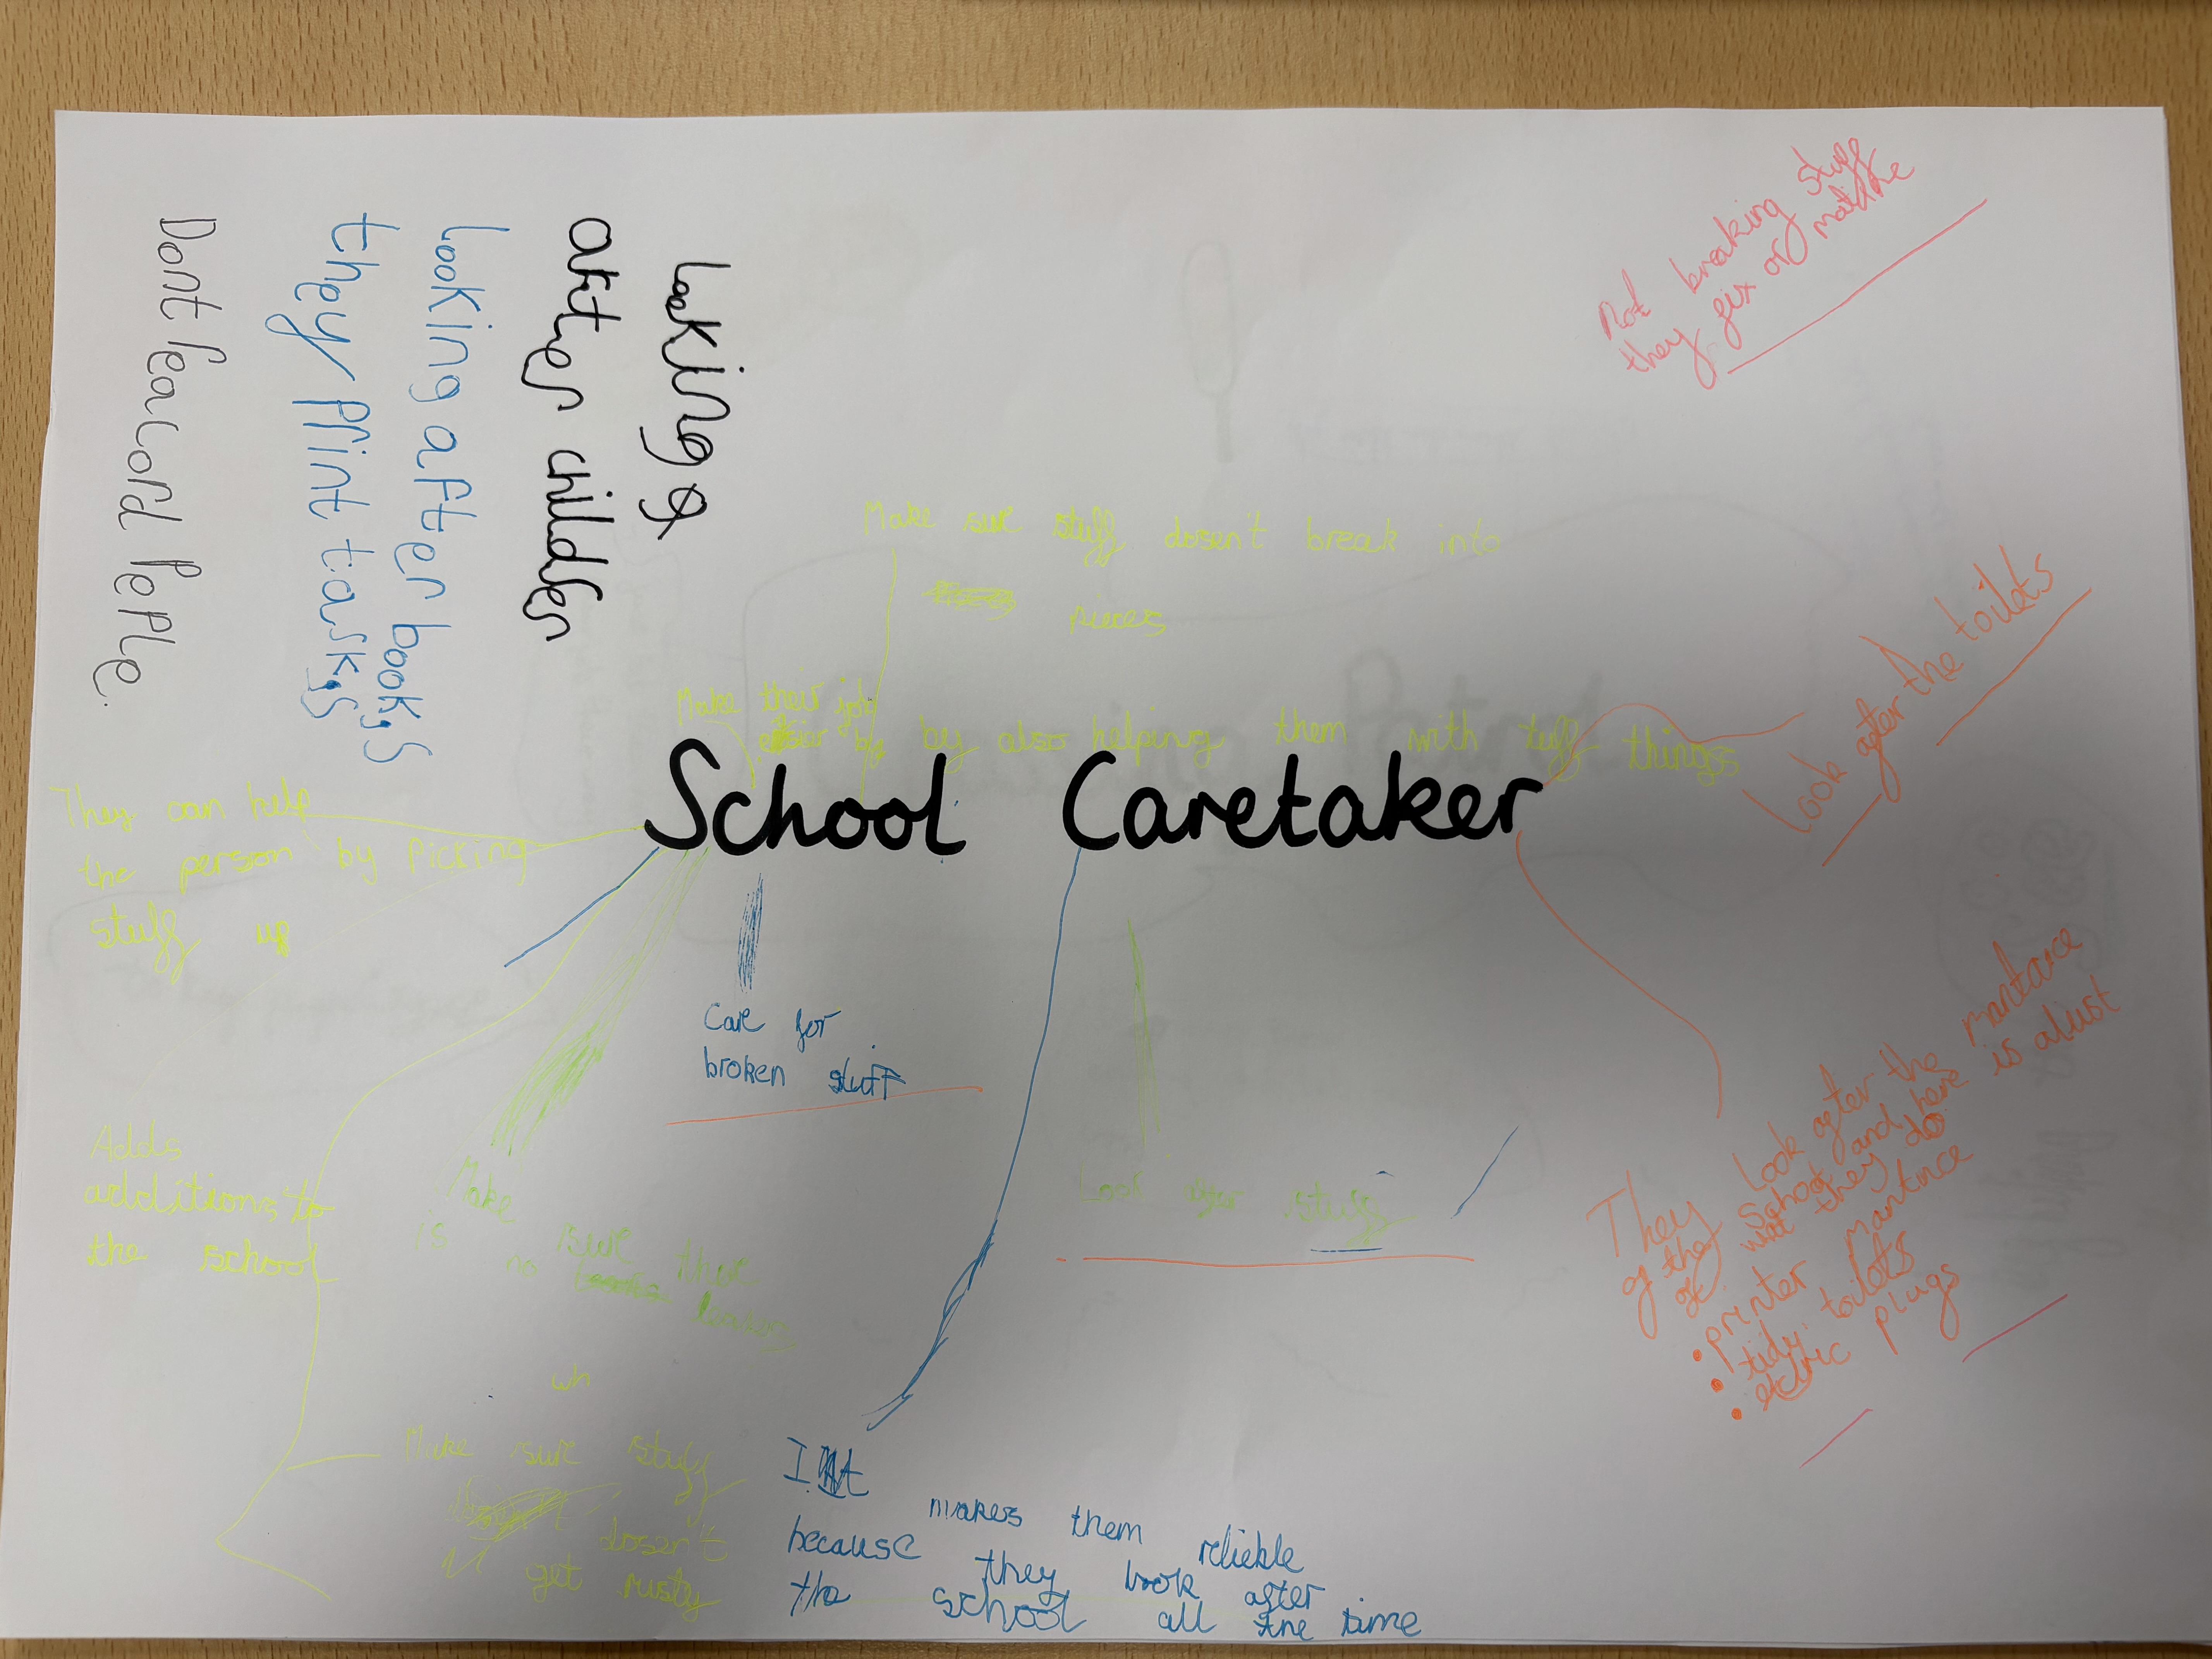 School Caretaker
Looking
after children
Looking after books
they Print tasks
Dont
People.
Not breaking stuff
they fix or
Make sure stuff dosen't break into
pieces
Make their job
by also helping them with tuff things
Look after the toilets
They can help
the person by Picking
stuff up
Care for
broken stuff
Adds
additions to
the school
Make sure thre
is no
Look after stuff
They Look after the mantance
of the school and here is alust
of what they do
printer mantnce
tidy toilets
plugs
wh
Make sure stuff
dosen't
get rusty
makes them reliable
because they look after
the school all the time